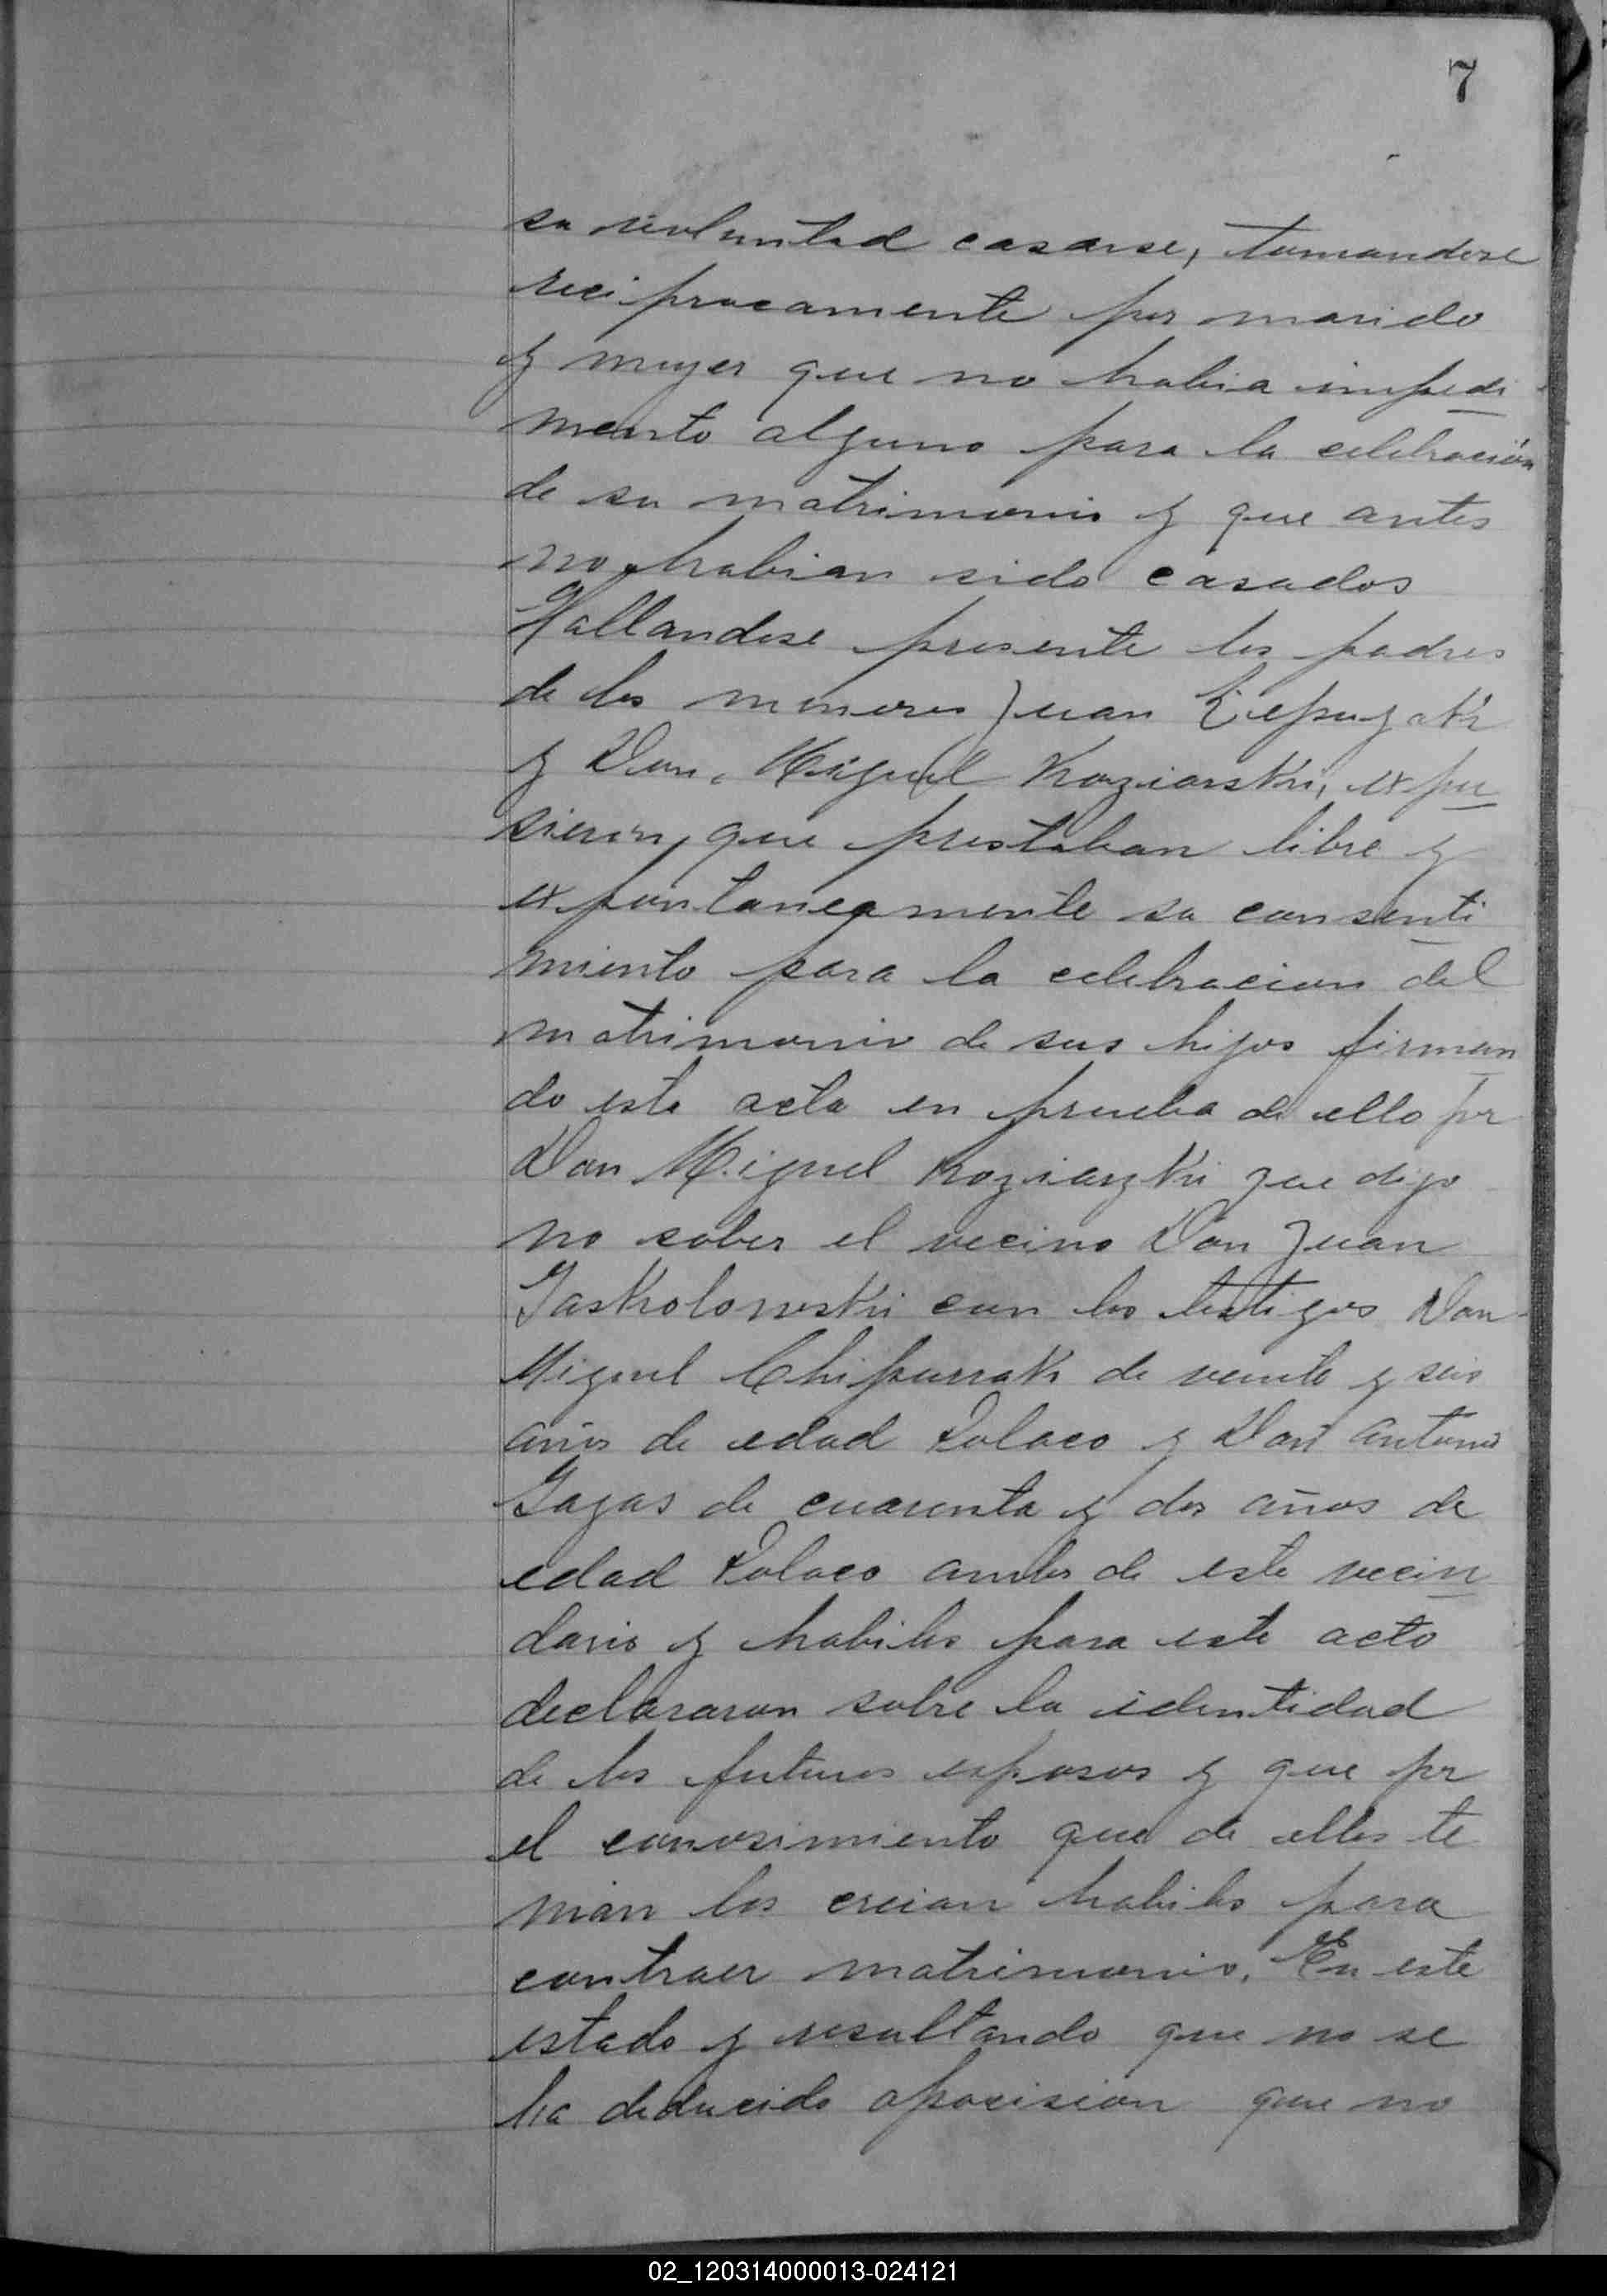 7
su voluntad casarse, tomandose
reciprocamente por marido
y mujer que no habia impedi
mento alguno para la celebración
de su matrimonio y que antes
no habian sido casados
Hallandose presente los padres
de los menores Juan
y Don, Miguel Koziarski, expu
sieron, que prestaban libre y
expontaneamente su consenti
miento para la celebracion del
matrimonio de sus hijos firman
do esta acta en prueba de ello por
Don Miguel Koziarzki que dijo
no saber el vecino Don Juan
Jaskolowski con los testigos Don
Miguel de veinte y seis
años de edad Polaco y Don Antonio
de cuarenta y dos años de
edad Polaco ambos de este vecin
dario y habiles para este acto
declararon sobre la identidad
de los futuros esposos y que por
el conosimiento que de ellos te
nian los creian habiles para
contraer matrimonio. En este
estado y resultando que no se
ha deducido oposicion que no
02_120314000013-024121